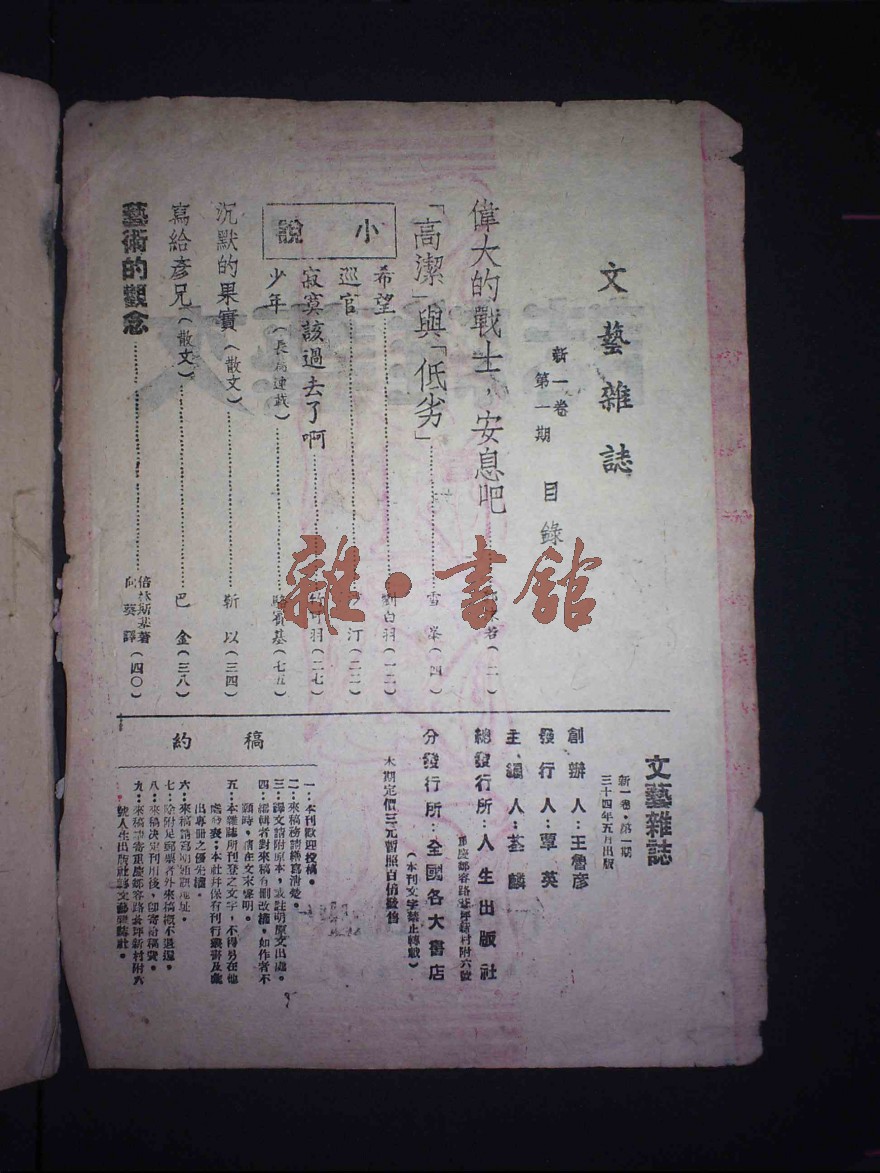 文藝雜誌
新一卷
第一期
目錄
偉大的戰士，安息吧……（二）
「高潔」與「低劣」……雪峯（四）
小說
希望……劉白羽（一二）
巡官……汀（二二）
寂寞該過去了啊……羽（二七）
少年（長篇連載）……駱賓基（七五）
沉默的果實（散文）……靳以（三四）
寫給彥兄（散文）……巴金（三八）
藝術的觀念……倍林斯基著
向葵譯（四〇）
文藝雜誌
新一卷·第一期
三十四年五月出版
創辦人：王魯彥
發行人：覃英
主編人：荃麟
總發行所：人生出版社
分發行所：全國各大書店
（本刊文字禁止轉載）
本期定價三元暫照百倍發售
稿約
一：本刊歡迎投稿。
二：來稿務請繕寫清楚。
三：譯文請附原本，或註明原文出處。
四：編輯者對來稿有刪改權，如作者不
願時，請在文末聲明。
五：本雜誌所刊登之文字，不得另在他
處發表；本社并保有刊行叢書及
出專冊之優先權。
六：來稿請寫明姓名地址。
七：除附足郵票者外來稿概不退還。
八：來稿決定刊用後，即寄給稿費。
九：來稿請寄重慶郵容路 坪新村附六
號人生出版社轉文藝雜誌社。
雜·書館